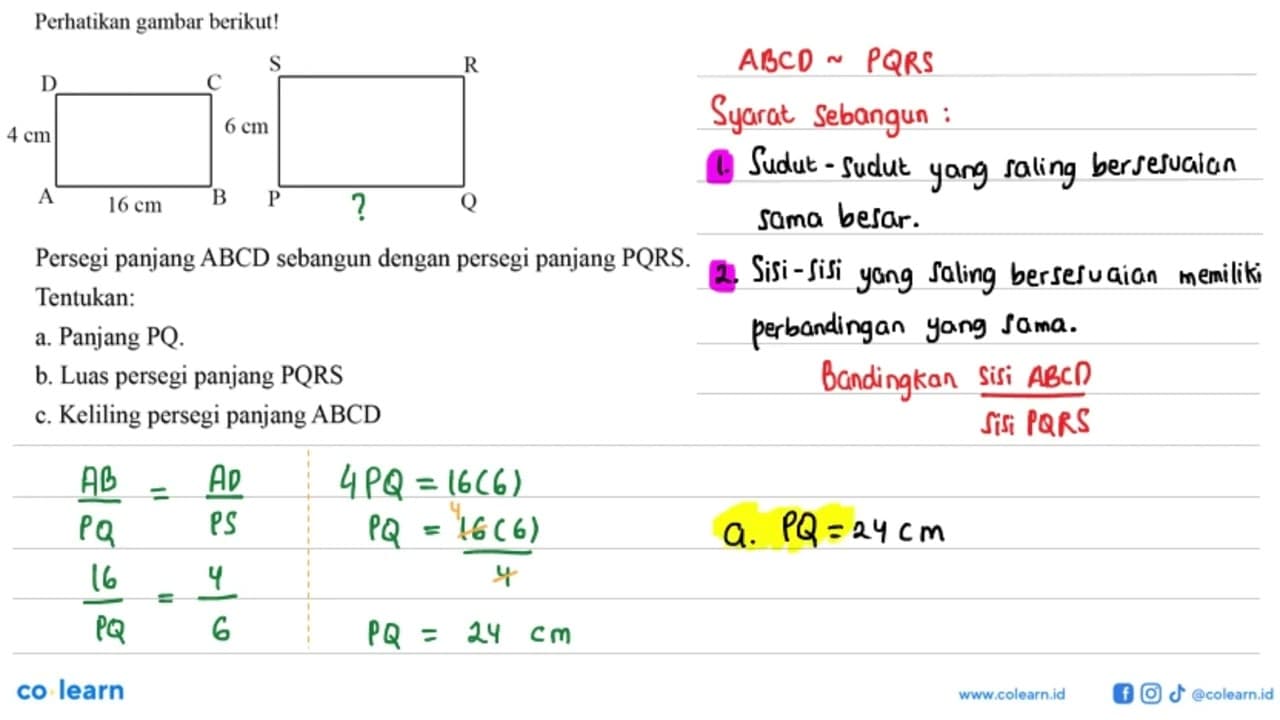 Perhatikan gambar berikut!
D C
4 cm
A 16 cm B
S R
6 cm
P ? Q
Persegi panjang ABCD sebangun dengan persegi panjang PQRS.
Tentukan:
a. Panjang PQ.
b. Luas persegi panjang PQRS
c. Keliling persegi panjang ABCD
ABCD ~ PQRS
Syarat Sebangun :
1. Sudut - Sudut yang saling bersesuaian
sama besar.
2. Sisi - sisi yang saling bersesuaian memiliki
perbandingan yang sama.
Bandingkan sisi ABCD
sisi PQRS
AB = AD
PQ PS
16 = 4
PQ 6
4PQ = 16(6)
4
PQ = 16(6)
4
PQ = 24 cm
a. PQ = 24 cm
co learn
www.colearn.id
@colearn.id